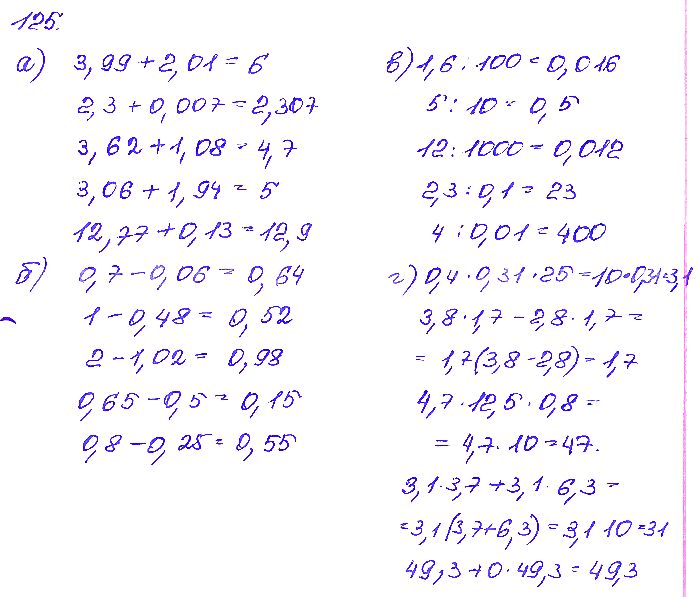 125.
а) 3,99 + 2,01 = 6
2,3 + 0,007 = 2,307
3,62 + 1,08 = 4,7
3,06 + 1,94 = 5
12,77 + 0,13 = 12,9
б) 0,7 - 0,06 = 0,64
1 - 0,48 = 0,52
2 - 1,02 = 0,98
0,65 - 0,5 = 0,15
0,8 - 0,25 = 0,55
в) 1,6 : 100 = 0,016
5 : 10 = 0,5
12 : 1000 = 0,012
2,3 : 0,1 = 23
4 : 0,01 = 400
г) 0,4 · 0,31 · 25 = 10 · 0,31 = 3,1
3,8 · 1,7 - 2,8 · 1,7 =
= 1,7(3,8 - 2,8) = 1,7
4,7 · 12,5 · 0,8 =
= 4,7 · 10 = 47.
3,1 · 3,7 + 3,1 · 6,3 =
= 3,1(3,7+6,3) = 3,1 · 10 = 31
49,3 + 0 · 49,3 = 49,3